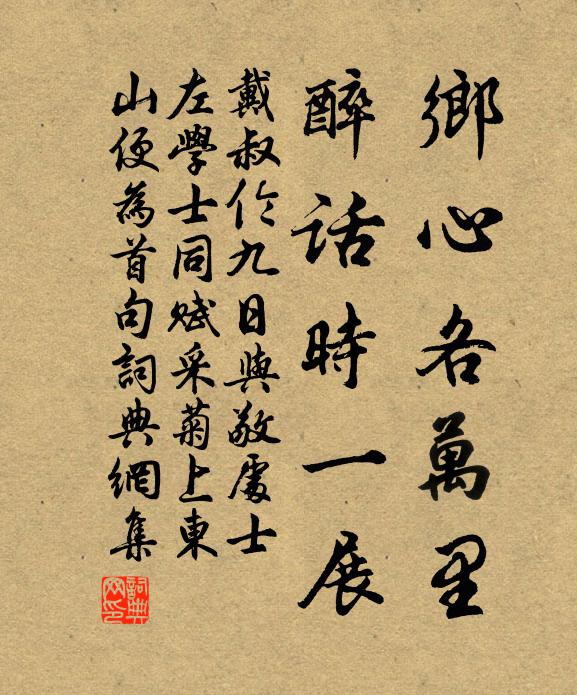 鄉心各萬里
醉話時一展
戴叔伦九日與敬處士
左學士同賦采菊上東
山便為首句詞典網集
詞典网印